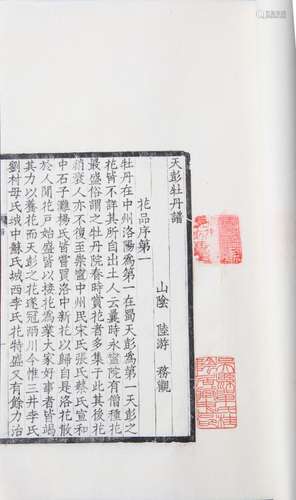 天彭牡丹譜
山陰 陸游 務觀
花品序第一
牡丹在中州洛陽爲第一在蜀天彭爲第一天彭之
花皆不詳其所自出土人云曩時永寧院有僧種花
最盛俗謂之牡丹院春時賞花者多集于此其後花
稍衰人亦不復至崇寧中州民宋氏張氏蔡氏宣和
中石子灘楊氏皆嘗買洛中新花以歸自是洛花散
於人間花戶始盛皆以接花爲業大家好事者皆竭
其力以養花而天彭之花遂冠兩川今惟三井李氏
劉村母氏城中蘇氏城西李氏花特盛又有餘力治